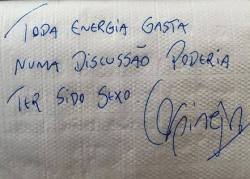 TODA ENERGIA GASTA
NUMA DISCUSSÃO PODERIA
TER SIDO SEXO